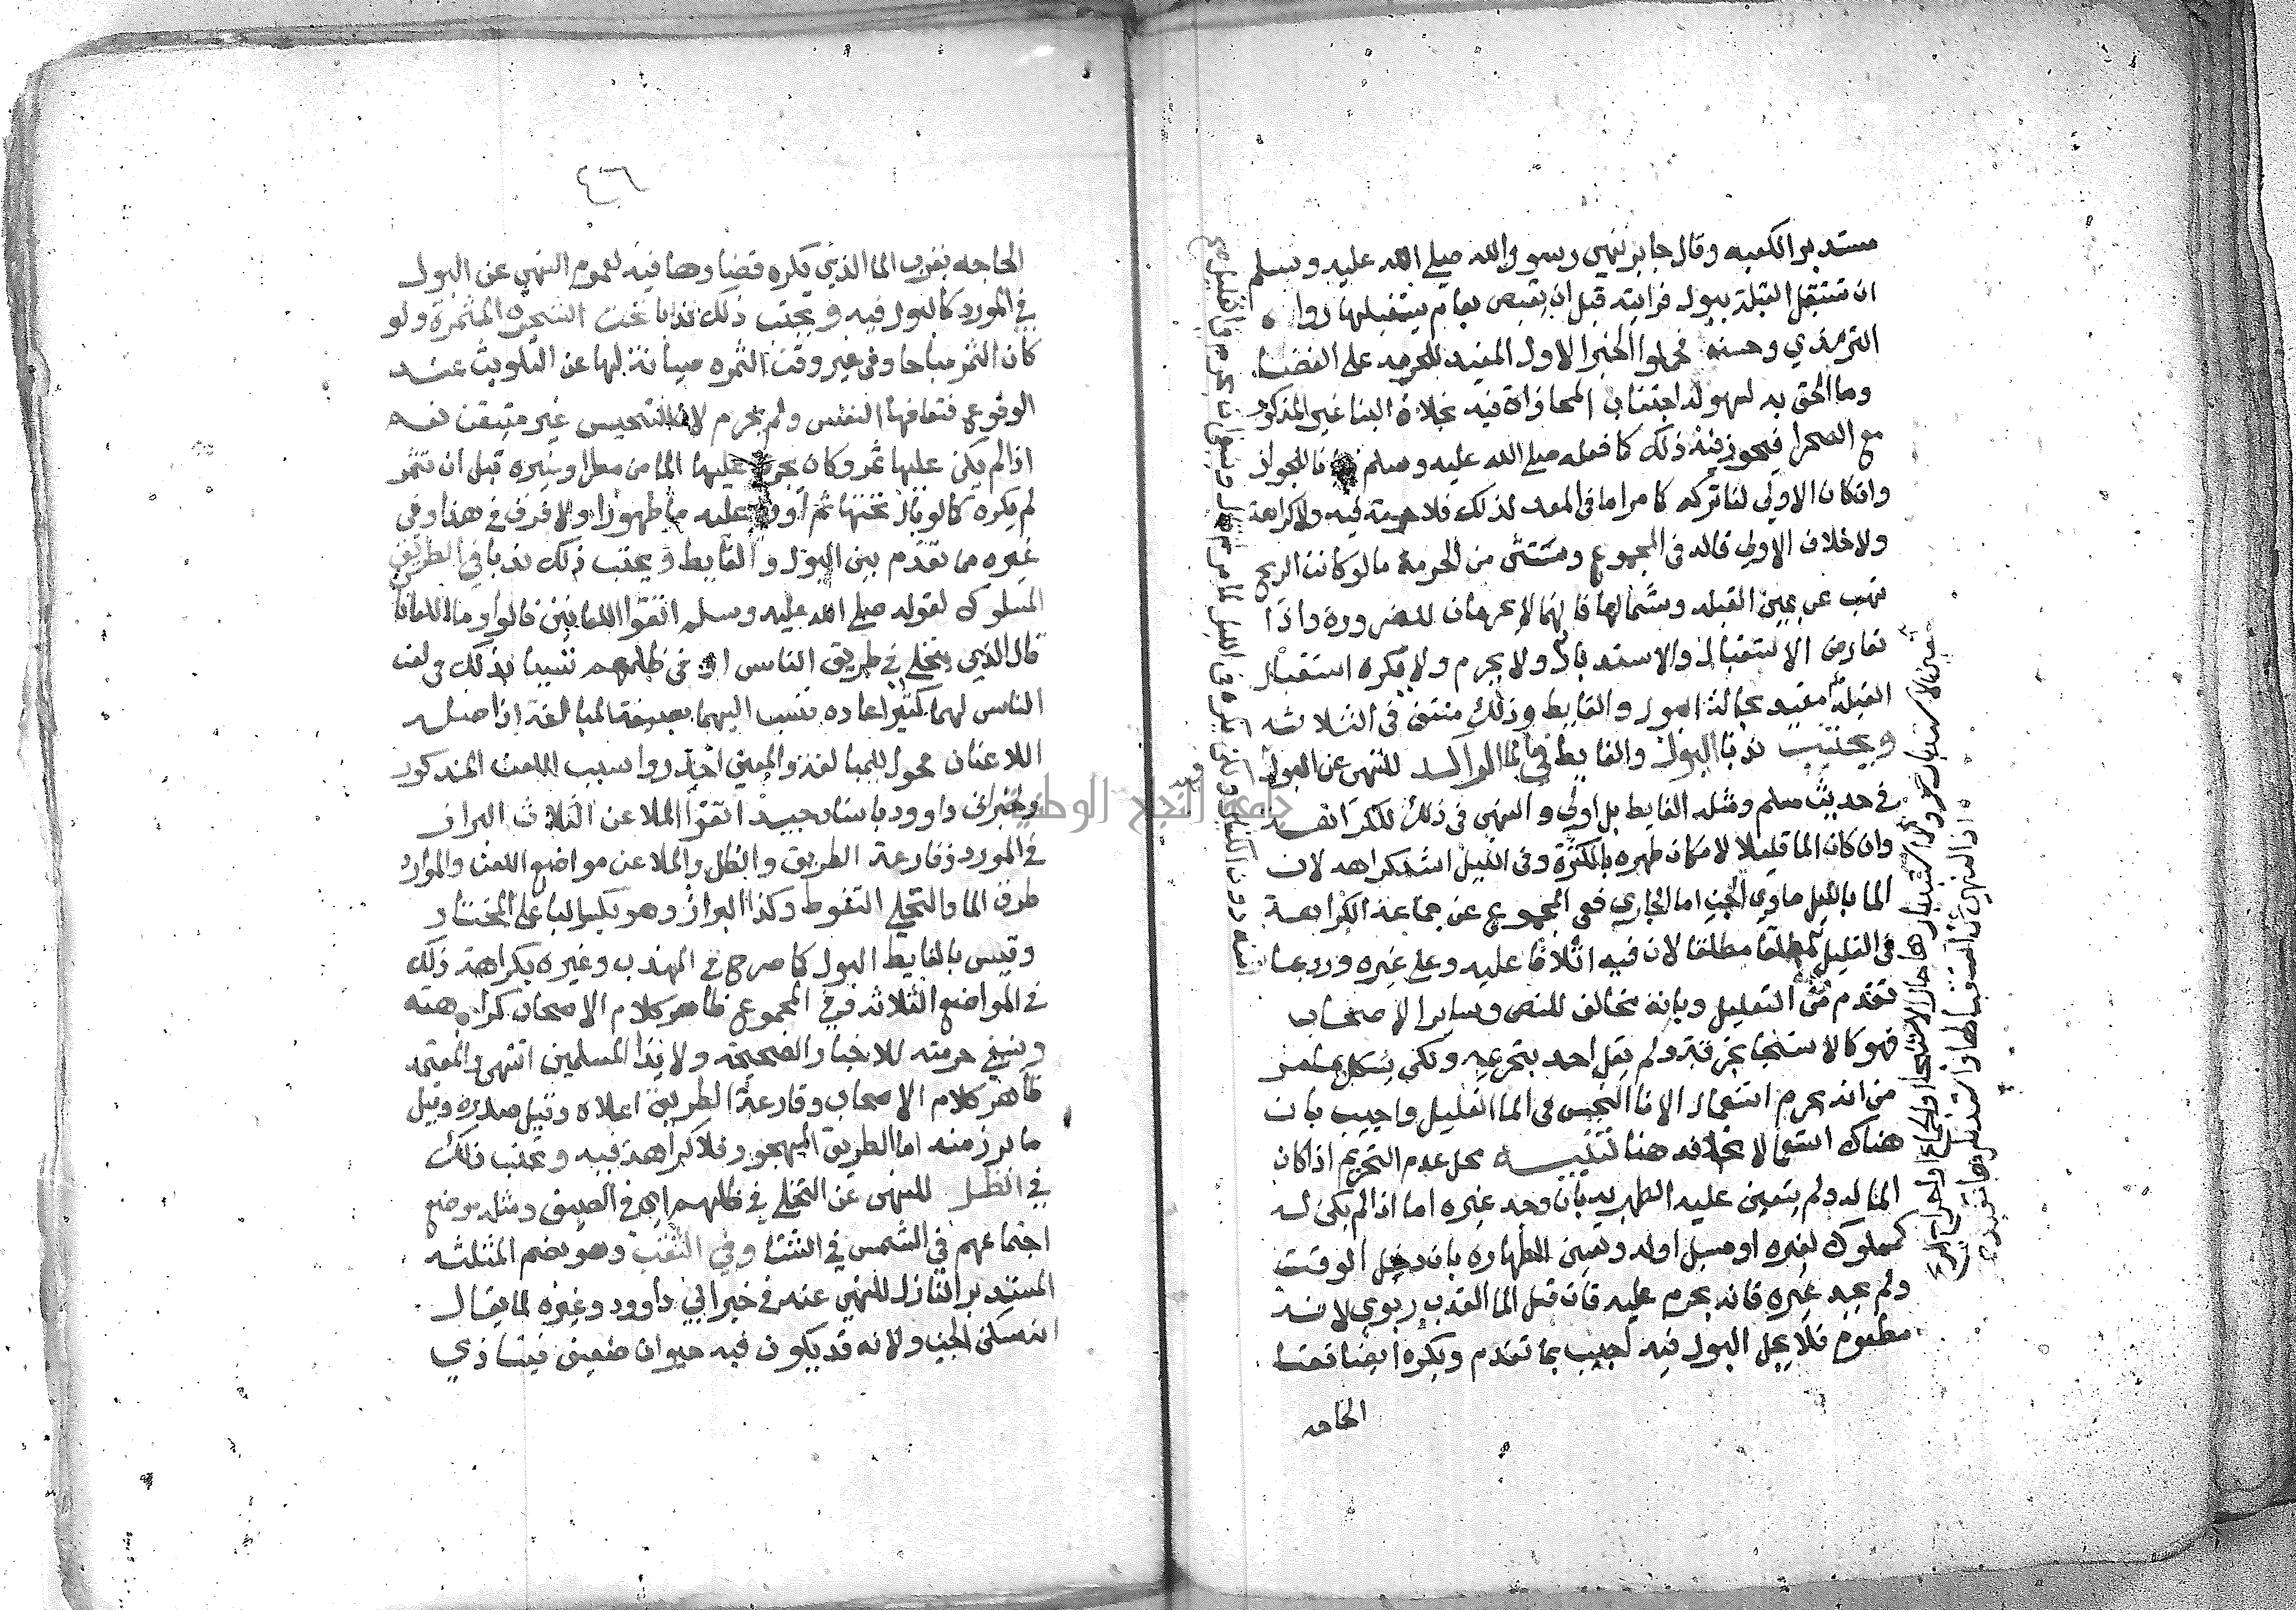 مستدبر الكعبه وقال جابر نهى رسول الله صلي الله عليه وسلم
ان تستقبل القبلة ببول فرايته قبل ان يقبض بعام يستقبلها رواه
الترمذي وحسنه فحملوا الخبر الاول المفيد للحرمه على الفضا
وما الحق به لسهولة اجتناب المحاذاة فيه بخلاف البنا غير المذكور
مع الصحرا فيجوز فيه ذلك كما فعله صلي الله عليه وسلم للجواز
وان كان الاولي لنا تركه كما مر اما في المعد لذلك فلا حرمة فيه ولا كراهة
ولا خلاف الاولي قاله في المجموع ويستثنى من الحرمة ما لو كانت الريح
تهب عن يمين القبله وشمالها فانهما لا يحرمان للضرورة واذا
تعارض الاستقبال والاستدبار ولا يحرم ولا يكره استقبال
القبلة مقيد بحالة البول والغايط وذلك منتفي في الثلاثه
ويجتنب ندبا البول والغايط في الما الراكد للنهي عن البول
في حديث مسلم ومثله الغايط بل اولي والنهي في ذلك للكراهة
وان كان الما قليلا لامكان طهره بالكثرة وفي الليل اشد كراهه لان
الما بالليل ماوي الجن اما الجاري ففي المجموع عن جماعة الكراهة
في القليل مطلقا لان فيه اتلافا عليه وعلي غيره ورد بما
تقدم من التعليل وبانه مخالف للنص وساير الاصحاب
فهو كالاستنجا بخرقة ولم يقل احد بتحريمه ولكن يشكل بما مر
من انه يحرم استعمال الانا النجس في الما القليل واجيب بان
هناك استعمالا بخلافه هنا تنبيه محل عدم التحريم اذا كان
الما له ولم يتعين عليه الطهر به بان وجد غيره اما اذا لم يكن له
كمملوك لغيره او مسبل او له وتعين للطهاره بان دخل الوقت
ولم يجد غيره فانه يحرم عليه فان قيل الما العذب ربوي لانه
مطعوم فلا يحل البول فيه اجيب بما تقدم ويكره ايضا قضا
الحاجه
٤٦
الحاجه بقرب الما الذي يكره قضاوها فيه لعموم النهي عن البول
في المورد كالبول فيه ويجتنب ذلك ندبا تحت الشجرة المثمرة ولو
كان الثمر مباحا وفي غير وقت الثمره صيانة لها عن التلويث عند
الوقوع فتعافها النفس ولم يحرم لان التنجيس غير متيقن نعم
اذا لم يكن عليها ثمر وكان يجري عليها الما من مطر او غيره قبل ان تثمر
لم يكره كما لو بال تحتها ثم اورد عليه ما طهورا ولا فرق في هذا وفي
غيره مما تقدم بين البول والغايط ويجتنب ذلك ندبا في الطريق
المسلوك لقوله صلي الله عليه وسلم اتقوا اللعانين قالوا وما اللعانان
قال الذي يتخلي في طريق الناس او في ظلهم تسببا بذلك في لعن
الناس لهما كثيرا عادة فنسب اليهما بصيغة المبالغة اذ اصله
اللاعنان محول للمبالغة والمعني احذروا سبب اللعن المذكور
ولخبر ابي داوود باسناد جيد اتقوا الملاعن الثلاث البراز
في الموارد وقارعة الطريق والظل والملاعن مواضع اللعن والموارد
طرق الما والتخلي التغوط وكذا البراز وهو بكسر البا على المختار
وقيس بالغايط البول كما صرح في المهذب وغيره بكراهة ذلك
في المواضع الثلاثه وفي المجموع ظاهر كلام الاصحاب كراهته
وينبغي حرمته للاخبار الصحيحة ولايذا المسلمين انتهى والمعتمد
ظاهر كلام الاصحاب وقارعة الطريق اعلاه وقيل صدره وقيل
ما برز منه اما الطريق المهجور فلا كراهة فيه ويجتنب ذلك
في الظل للنهي عن التخلي في ظلهم اي في الصيف ومثله موضع
اجتماعهم في الشمس في الشتا وفي الثقب وهو بضم المثلثه
المستدير النازل للنهي عنه في خبر ابي داوود وغيره لما يقال
انه سكن الجن ولانه قد يكون فيه حيوان ضعيف فيتاذي
جامعة النجاح الوطنية